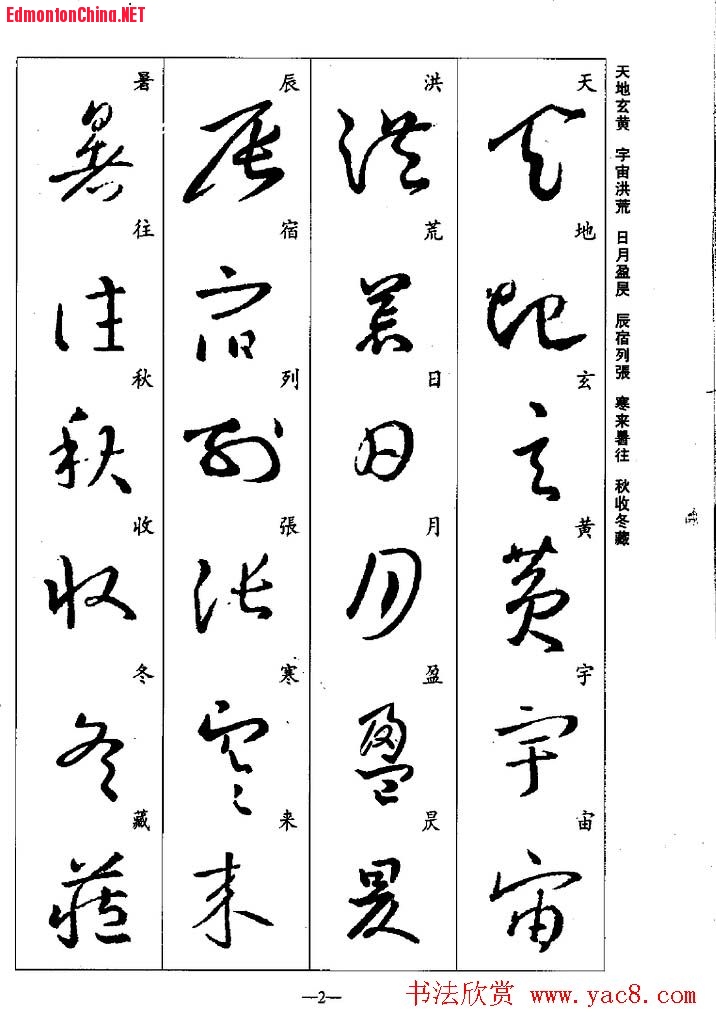 EdmontonChina.NET
天地玄黄 宇宙洪荒 日月盈昃 辰宿列張 寒来暑往 秋收冬藏
天地玄黄宇宙
洪荒日月盈昃
辰宿列張寒来
暑往秋收冬藏
—2—
书法欣赏 www.yac8.com